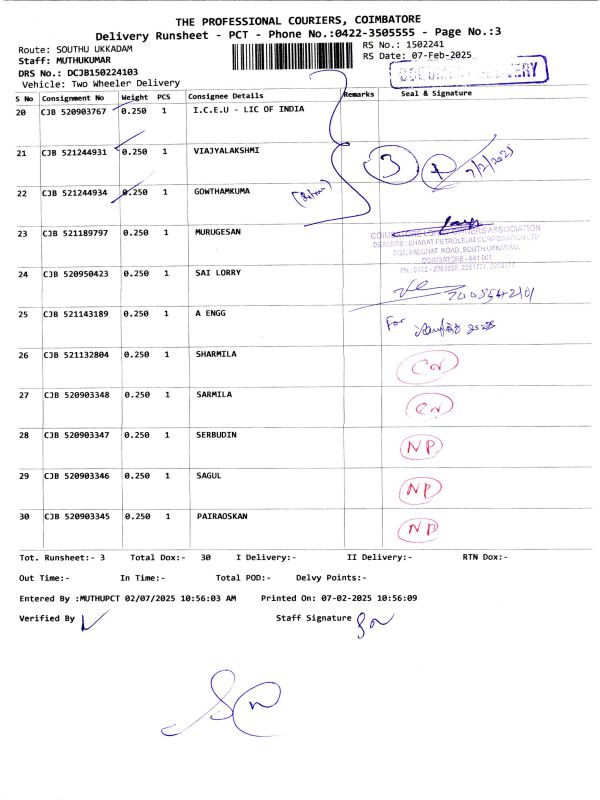 THE PROFESSIONAL COURIERS, COIMBATORE
Delivery Runsheet - PCT - Phone No.:0422-3505555 - Page No.:3
Route: SOUTHU UKKADAM
RS No.: 1502241
Staff: MUTHUKUMAR
RS Date: 07-Feb-2025
DRS No.: DCJB150224103
Vehicle: Two Wheeler Delivery
S No Consignment No Weight PCS Consignee Details Remarks Seal & Signature
20 CJB 520903767 0.250 1 I.C.E.U - LIC OF INDIA
21 CJB 521244931 0.250 1 VIAJYALAKSHMI
3 7/2/2025
22 CJB 521244934 0.250 1 GOWTHAMKUMA
23 CJB 521189797 0.250 1 MURUGESAN
DEALERS : BHARAT PETROLEUM CORPORATION LTD
PALGHAT ROAD, SOUTH UKKADAM,
COIMBATORE - 641 001
24 CJB 520950423 0.250 1 SAI LORRY
25 CJB 521143189 0.250 1 A ENGG
For
26 CJB 521132804 0.250 1 SHARMILA
27 CJB 520903348 0.250 1 SARMILA
28 CJB 520903347 0.250 1 SERBUDIN NP
29 CJB 520903346 0.250 1 SAGUL NP
30 CJB 520903345 0.250 1 PAIRAOSKAN NP
Tot. Runsheet:- 3 Total Dox:- 30 I Delivery:- II Delivery:- RTN Dox:-
Out Time:- In Time:- Total POD:- Delvy Points:-
Entered By :MUTHUPCT 02/07/2025 10:56:03 AM Printed On: 07-02-2025 10:56:09
Verified By Staff Signature